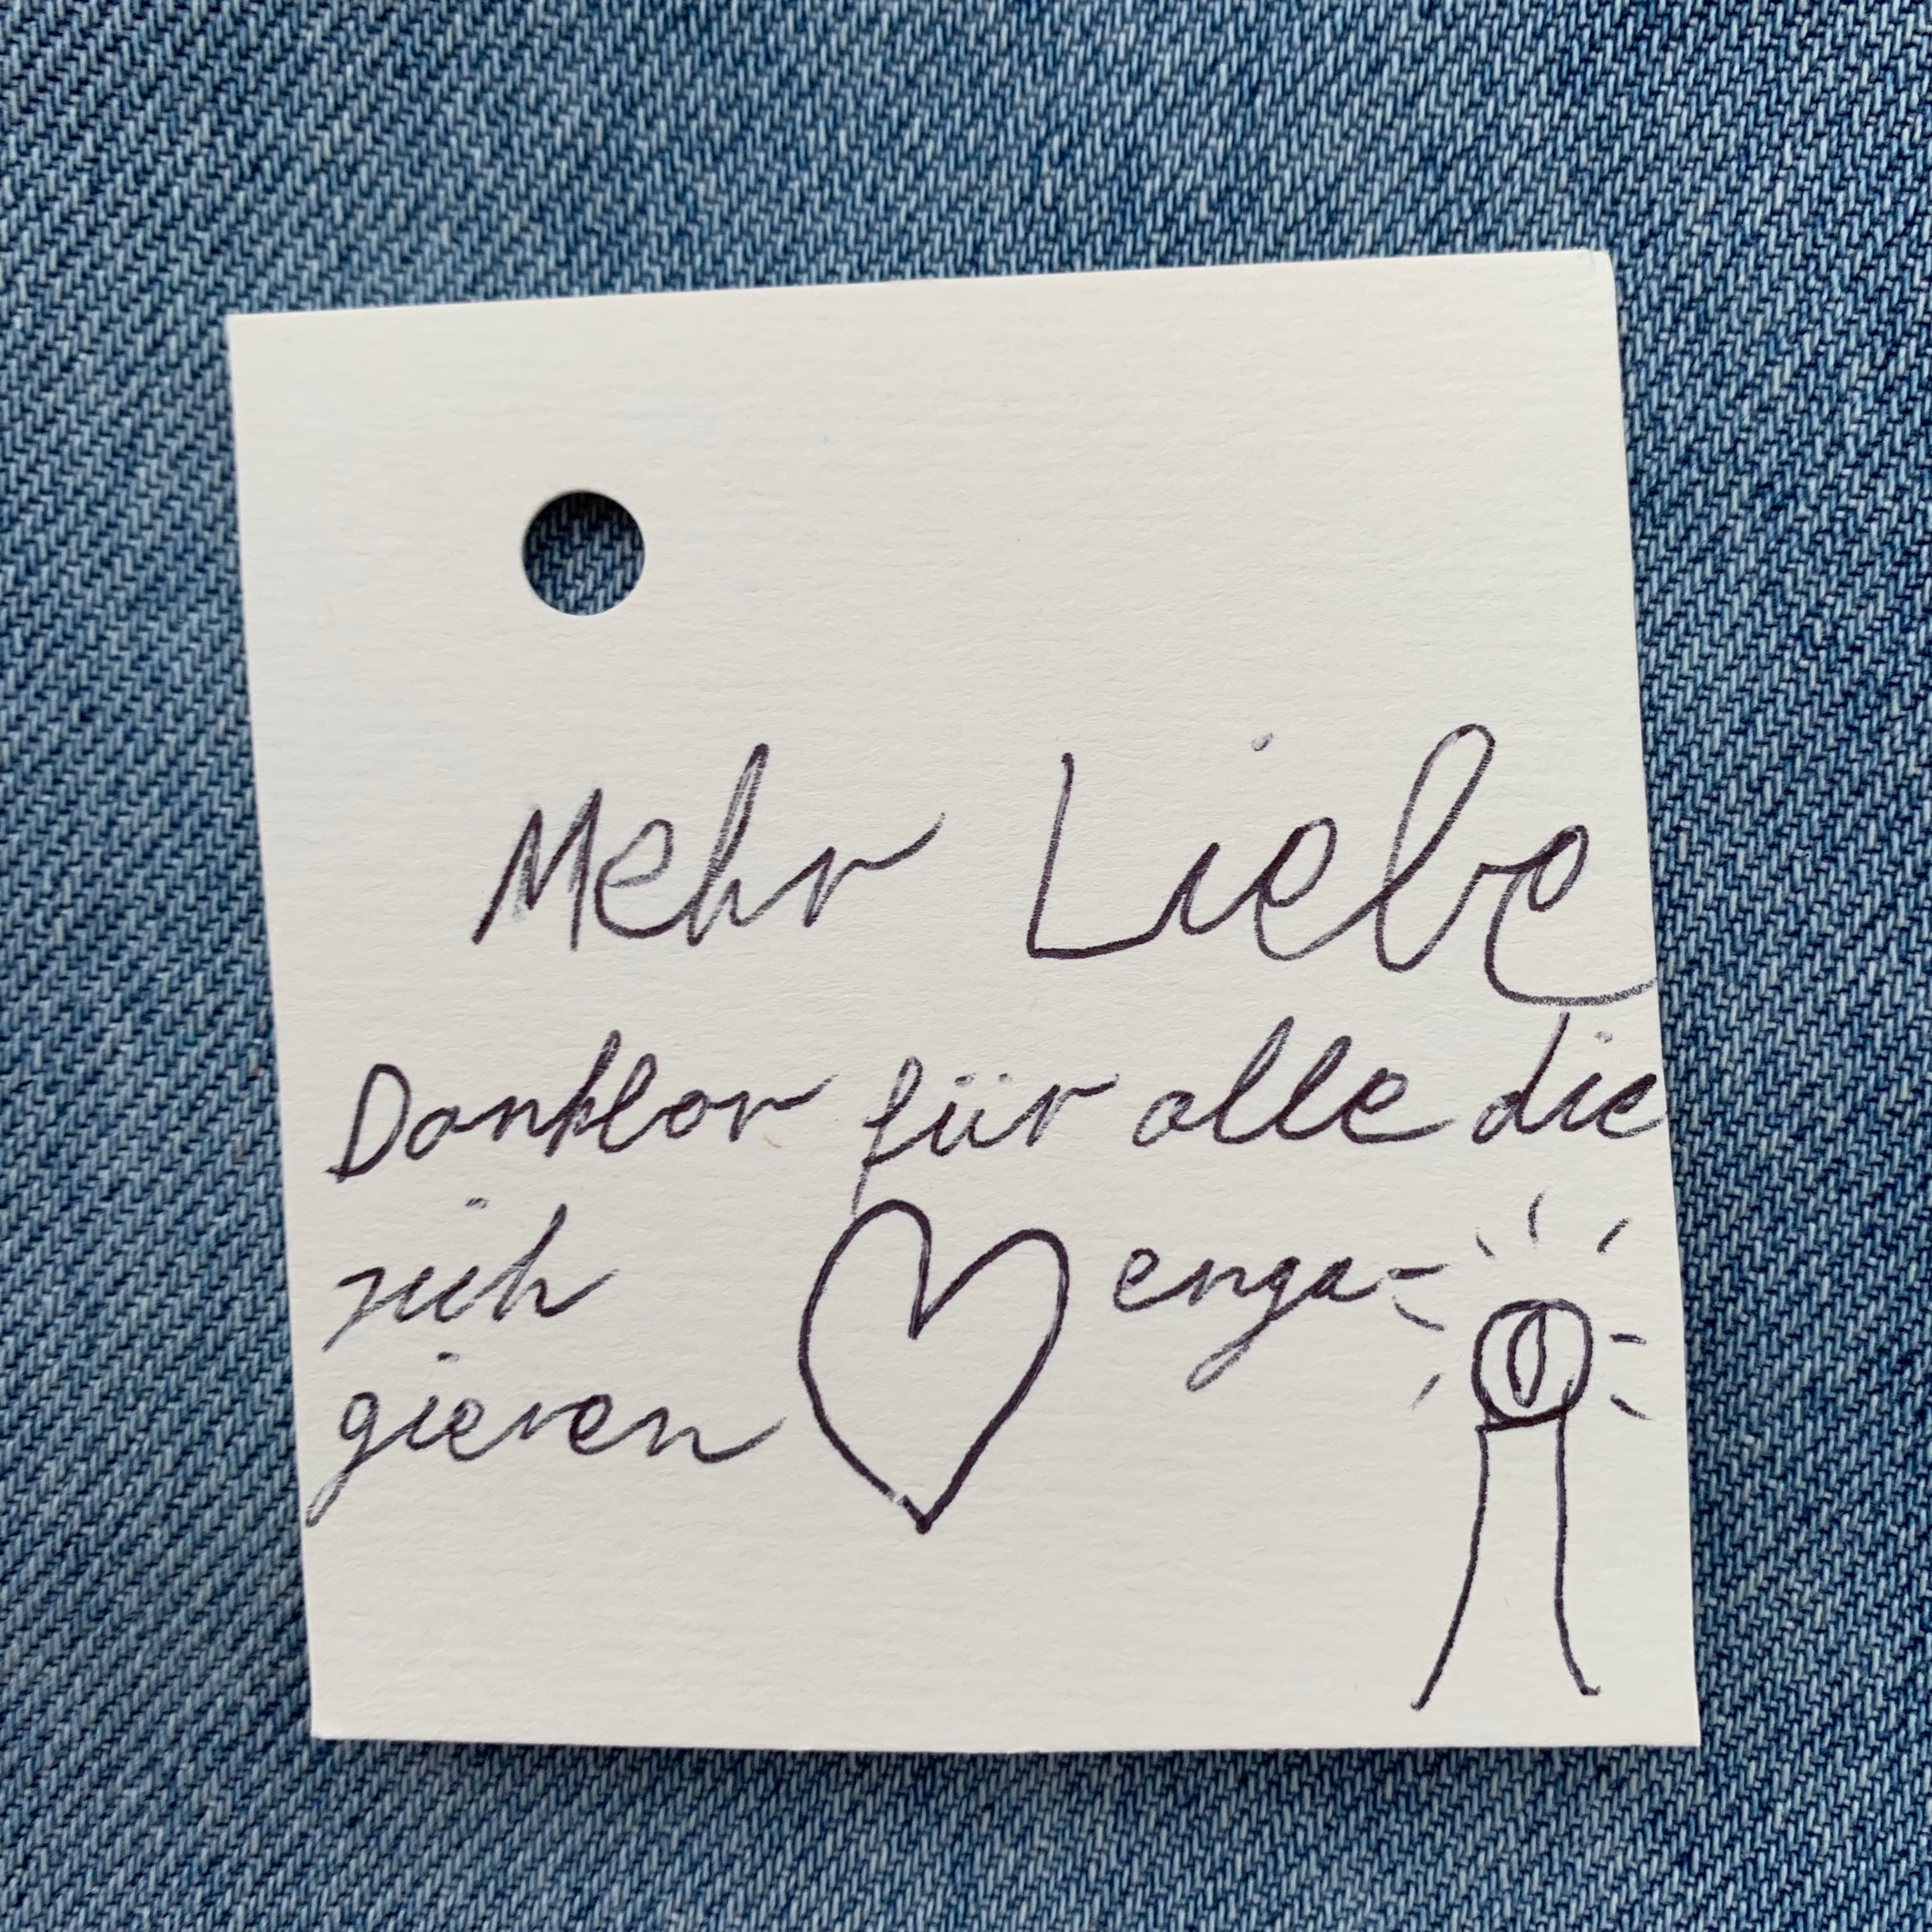 Mehr Liebe
Dankbar für alle die
sich enga-
gieren